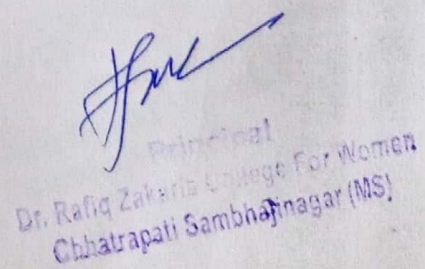 Principal
Dr. Rafiq Zakaria College For Women
Chhatrapati Sambhajinagar (MS)